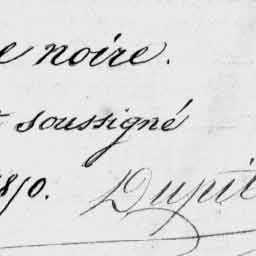 e noire.
soussigné
1810. Dupil